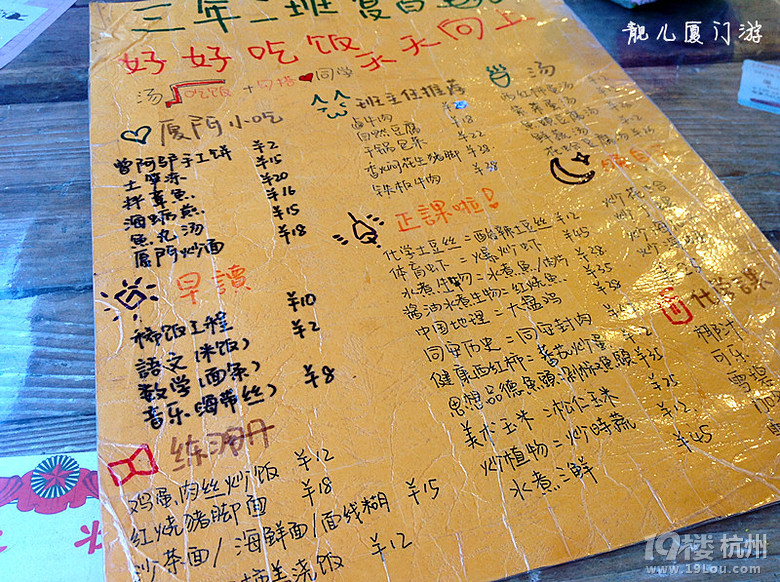 靓儿厦门游
三年二班
好好吃饭天天向上
汤 吃饭 + 勾搭 同学
厦门小吃
曾阿郎手工饼 ¥2
土笋冻 ¥15
拌章鱼 ¥20
海蛎煎 ¥16
鱼丸汤 ¥15
厦门炒面 ¥18
早讀
稀饭工程 ¥10
語文(米饭) ¥2
数学(面条)
音乐(海带丝) ¥8
练习册
鸡蛋肉丝炒饭 ¥12
红烧豬脚面 ¥18
沙茶面/海鲜面/面线糊 ¥15
浇饭 ¥12
班主任推荐
卤牛肉
自然豆腐 ¥18
干锅包菜 ¥22
香焖花生猪脚 ¥38
铁板牛肉 ¥28
正課啦!
化学土豆丝=酸辣土豆丝 ¥12
体育虾=爆炒虾 ¥45
水煮生物=水煮魚/肉片 ¥38
酱油水煮生物=红烧魚 ¥35
中国地理=大盘鸡 ¥38
同安历史=同安封肉
健康西红柿=蕃茄炒蛋 ¥2
思想品德魚頭=剁椒魚頭 ¥35
美术玉米=松仁玉米 ¥25
炒植物=炒時蔬 ¥12
水煮海鮮 ¥45
汤
紫菜蛋汤
化学課
可乐
雪碧
19楼 杭州
www.19lou.com